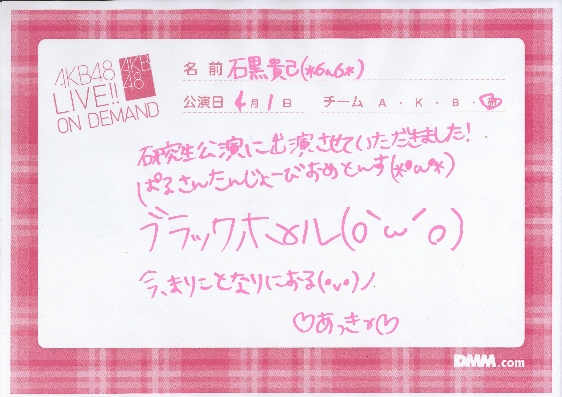 AKB48
LIVE!!
ON DEMAND
AKB
48
名前 石黒貴己(*6ω6*)
公演日 4月1日 チーム A・K・B・研
研究生公演に出演させていただきました!
ぱるさんたんじょーびおめとんす(*°ω°*)
ブラックホール(o`ω´o)
今、まりことなりにおる(°v°)ノ
♡あっきー♡
DMM.com